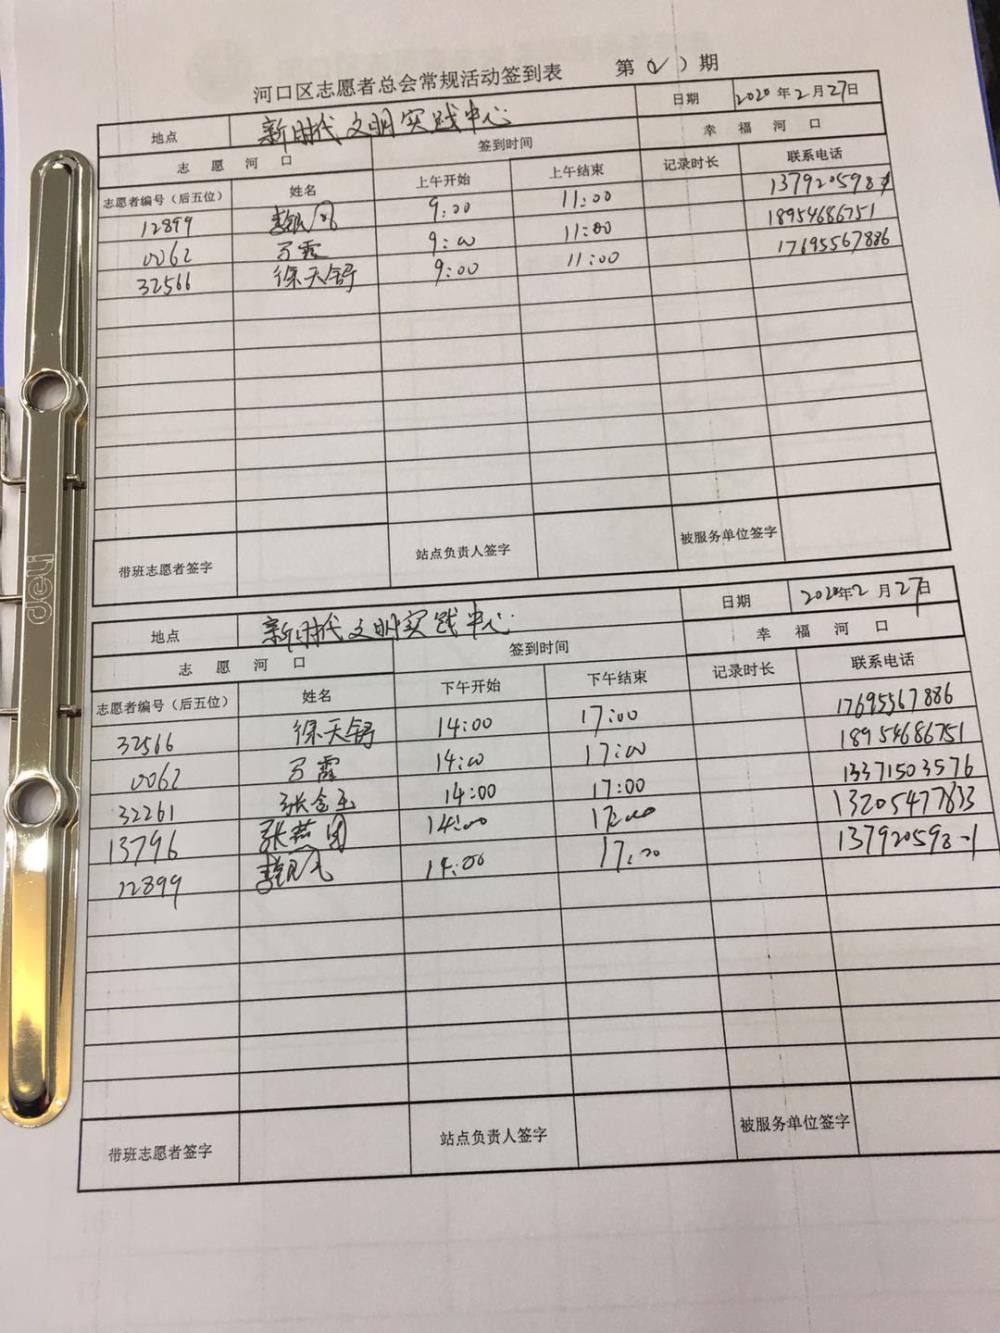 河口区志愿者总会常规活动签到表 第（ ）期
地点 新时代文明实践中心 日期 2020年2月27日
志愿河口 签到时间 幸福河口
志愿者编号（后五位） 姓名 上午开始 上午结束 记录时长 联系电话
12899 9:00 11:00
0062 万霞 9:00 11:00 18954686751
32566 徐天舒 9:00 11:00 17695567886
带班志愿者签字 站点负责人签字 被服务单位签字
地点 新时代文明实践中心 日期 2020年2月27日
志愿河口 签到时间 幸福河口
志愿者编号（后五位） 姓名 下午开始 下午结束 记录时长 联系电话
32566 徐天舒 14:00 17:00 17695567886
0062 万霞 14:00 17:00 18954686751
32261 张金玉 14:00 17:00 13371503576
13796 14:00 17:00 13205477833
12899 14:00 17:00
带班志愿者签字 站点负责人签字 被服务单位签字
deli